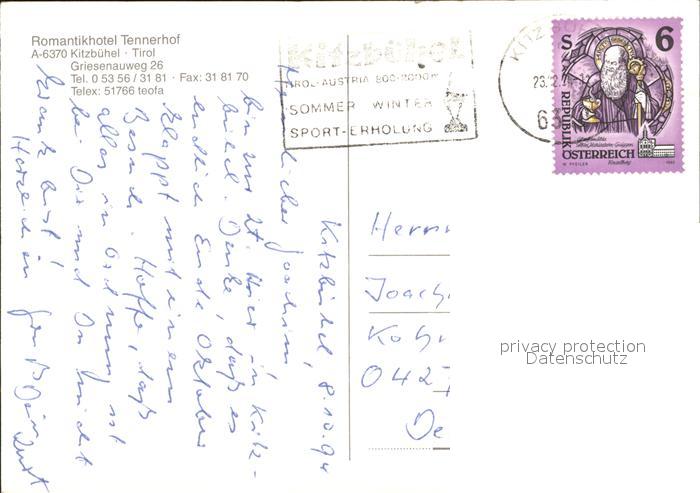 Romantikhotel Tennerhof
A-6370 Kitzbühel · Tirol
Griesenauweg 26
Tel. 0 53 56 / 31 81 · Fax: 31 81 70
Telex: 51766 teofa
TIROL-AUSTRIA 800-2000m
SOMMER WINTER
SPORT-ERHOLUNG
KITZ
6
REPUBLIK
ÖSTERREICH
Kitzbühel, 8.10.94
Joachim,
bin zur Zt. hier in Kitz-
bühel. Denke, daß es
endlich Ende Oktober
klappt mit einem
Besuch. Hoffe, daß
alles in Ordnung ist
bei Dir und Du nicht
krank bist!
Herzlichen Gruß Dein
Herrn
Joach
042
De
privacy protection
Datenschutz